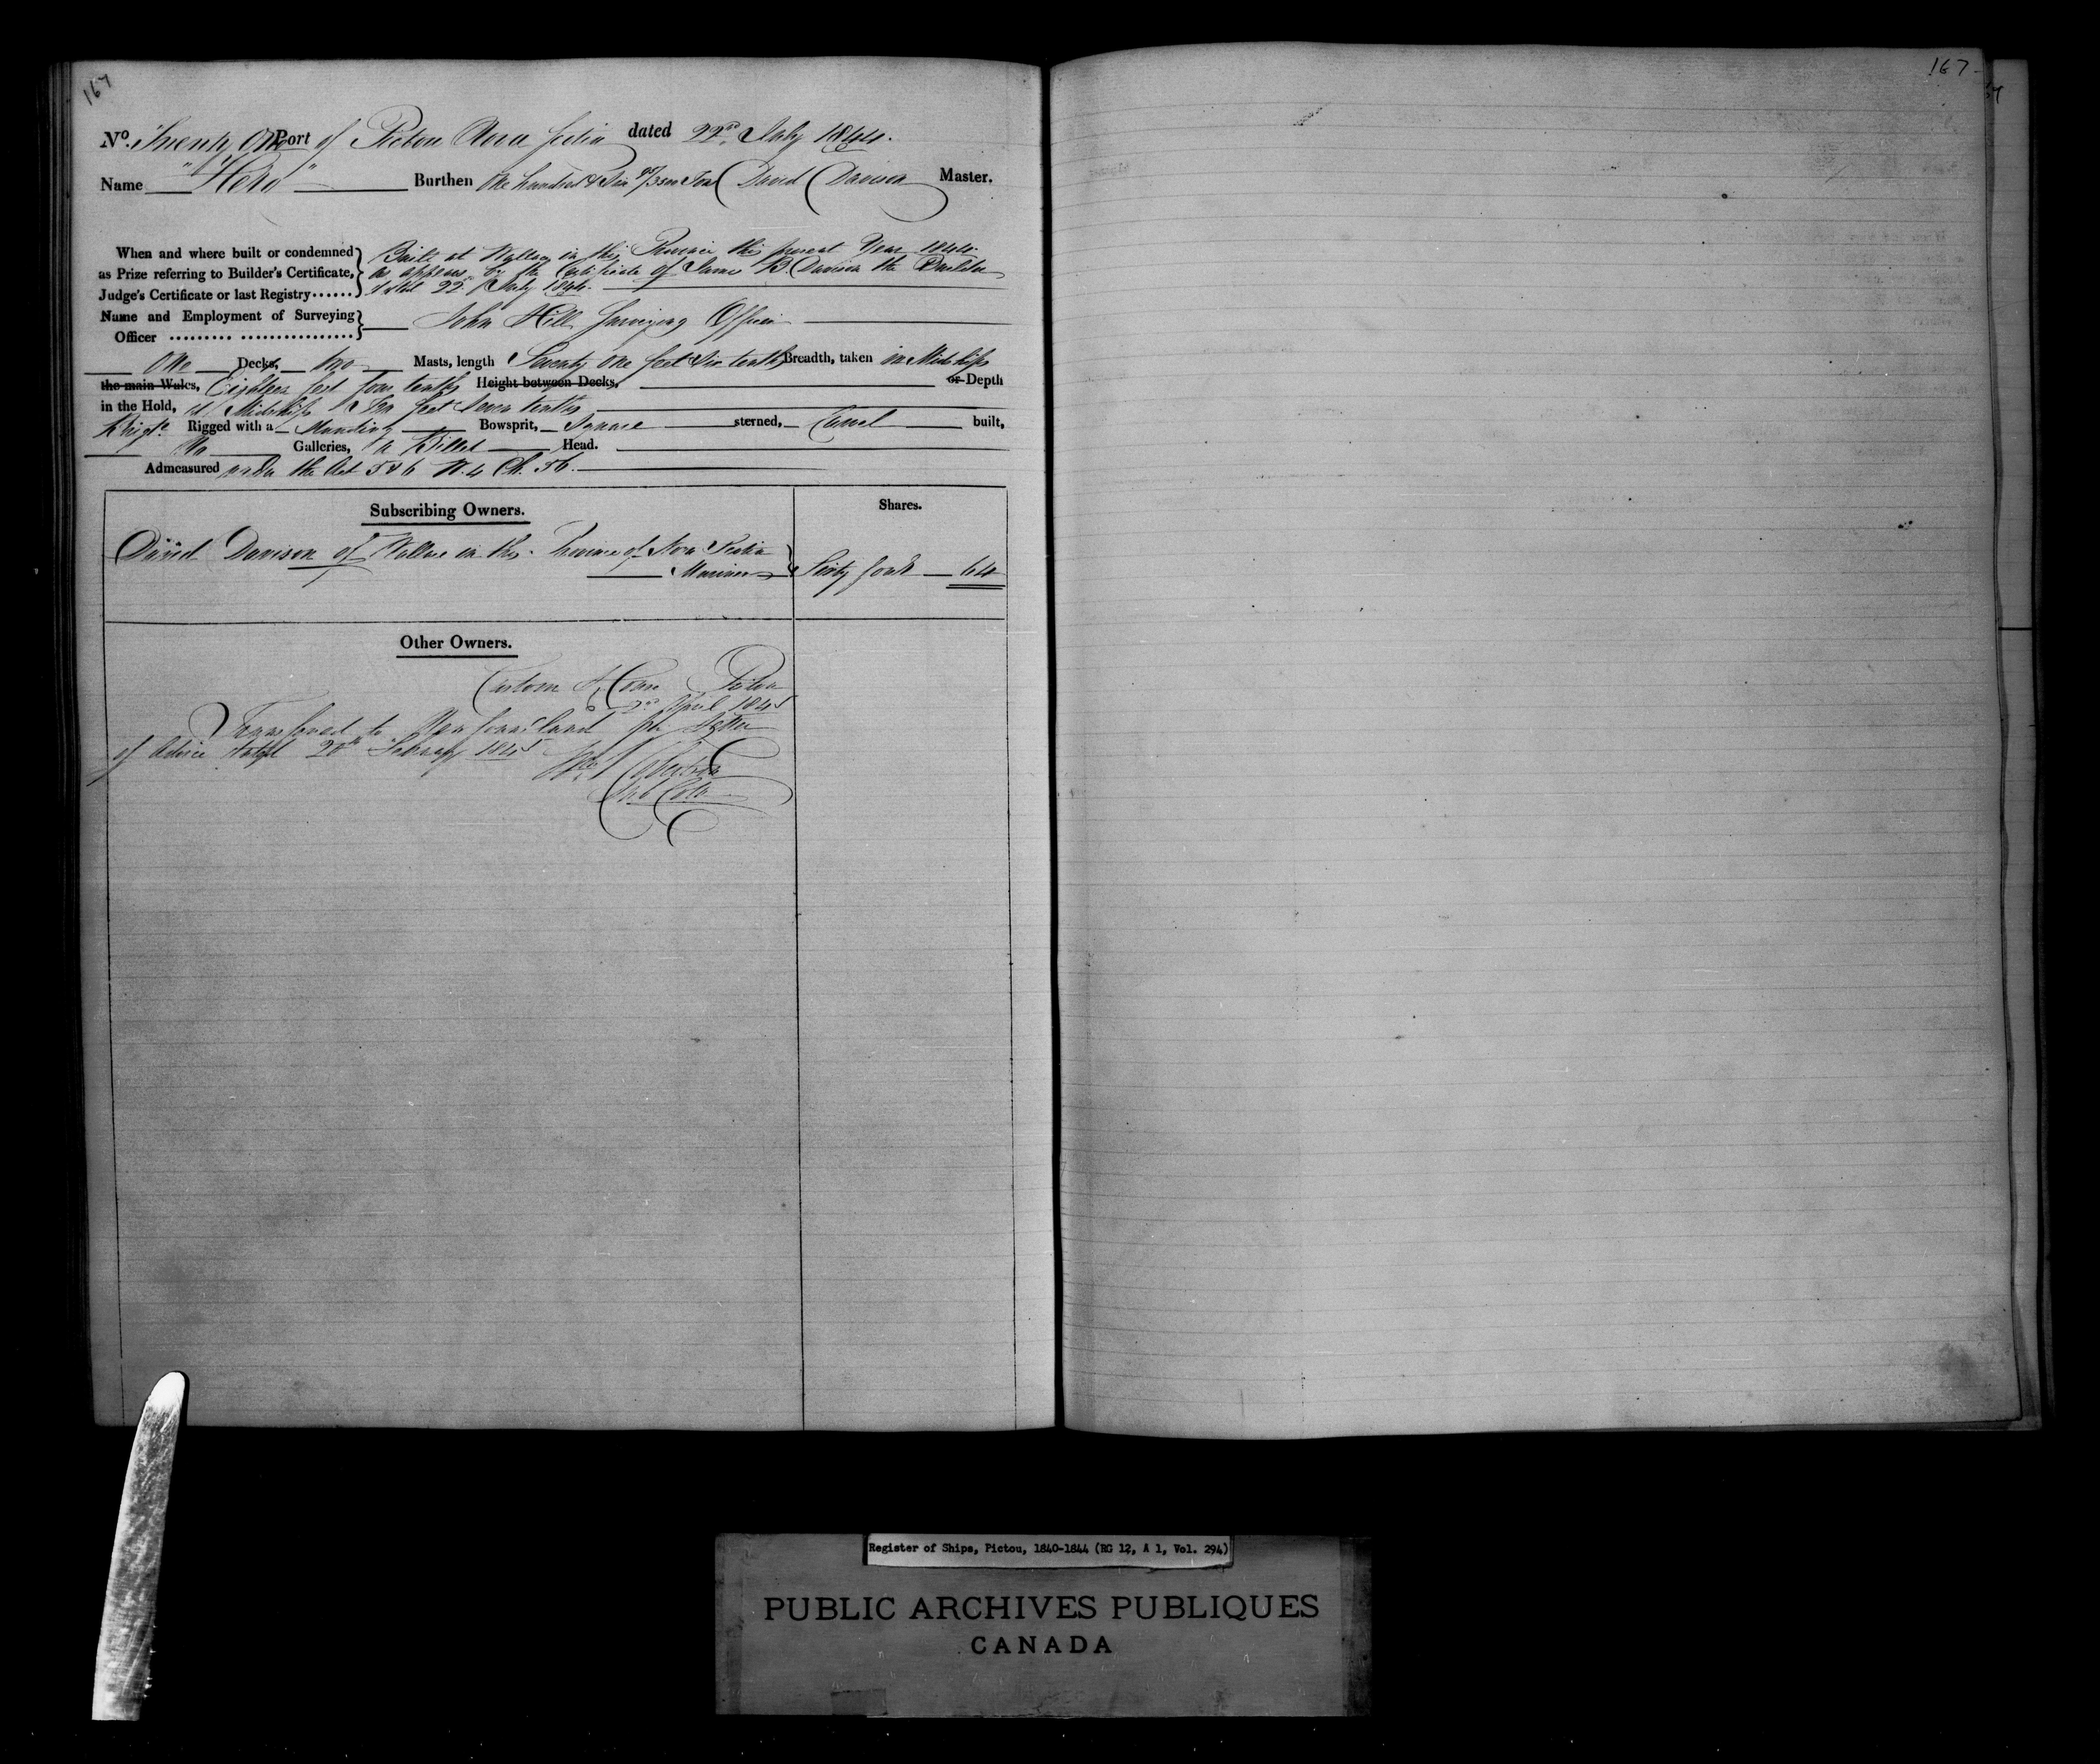 167
167
No. Twenty One Port of Pictou Nova Scotia dated 22nd July 1844.
Name "Hero" Burthen One hundred & Six Tons David Davison Master.
When and where built or condemned
as Prize referring to Builder's Certificate,
Judge's Certificate or last Registry......
Built at Wallace in this Province this present Year 1844
as appears by the Certificate of James B. Davison the Builder
dated 22 July 1844.
Name and Employment of Surveying
Officer ......... ................
John Hill Surveying Officer
One Decks, Two Masts, length Seventy One feet Six tenths Breadth, taken in Midships
the main Wales, Eighteen feet four tenths Height between Decks, or Depth
in the Hold, at Midships Ten feet Seven tenths
Brigte. Rigged with a Standing Bowsprit, Square sterned, Carvel built,
No Galleries, a Billet Head.
Admeasured under the Act 5 & 6 W. 4 Ch. 56.
Subscribing Owners.
Shares.
David Davison of Wallace in the Province of Nova Scotia
Mariner Sixty four 64
Other Owners.
Custom House Pictou
April 1845
Transferred to Newfoundland per Letter
of Advice dated 20th February 1845
Register of Ships, Pictou, 1840-1844 (RG 12, A 1, Vol. 294)
PUBLIC ARCHIVES PUBLIQUES
CANADA